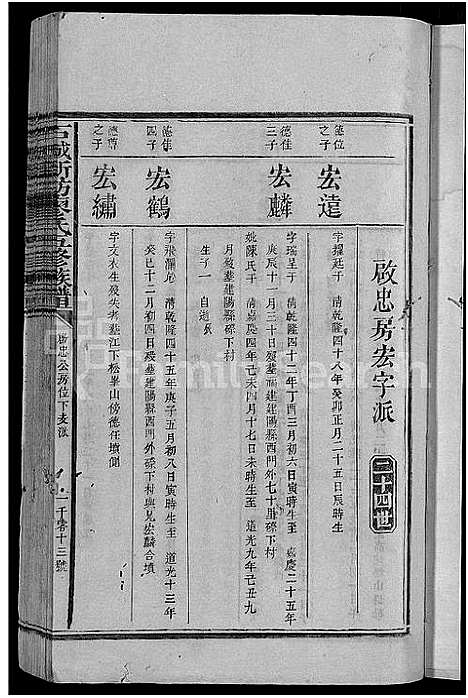 啟忠房宏字派
二十四世
德位
之子
宏遠
字 延于 清乾隆四十八年癸卯正月二十五日辰時生
德佳
三子
宏麟
字瑞呈于 清乾隆四十二年丁酉三月初六日寅時生至 嘉慶二十五年
庚辰十一月三十日歿墓福建建陽縣西門外七十里磜下村
妣陳氏于 清嘉慶四年己未四月十七日未時生至 道光九年己丑九
月歿墓建陽縣磜下村
生子一 自
德佳
四子
宏鶴
字飛 于 清乾隆四十五年庚子五月初八日寅時生至 道光十三年
癸巳十二月初四日歿墓建陽縣西門外磜下村與兄宏麟合墳
德尊
之子
宏繡
字文 生歿失考 江下松 山傍德任墳側
石城 坊 氏 修族譜
啟忠公房位下支派
一千零十三號